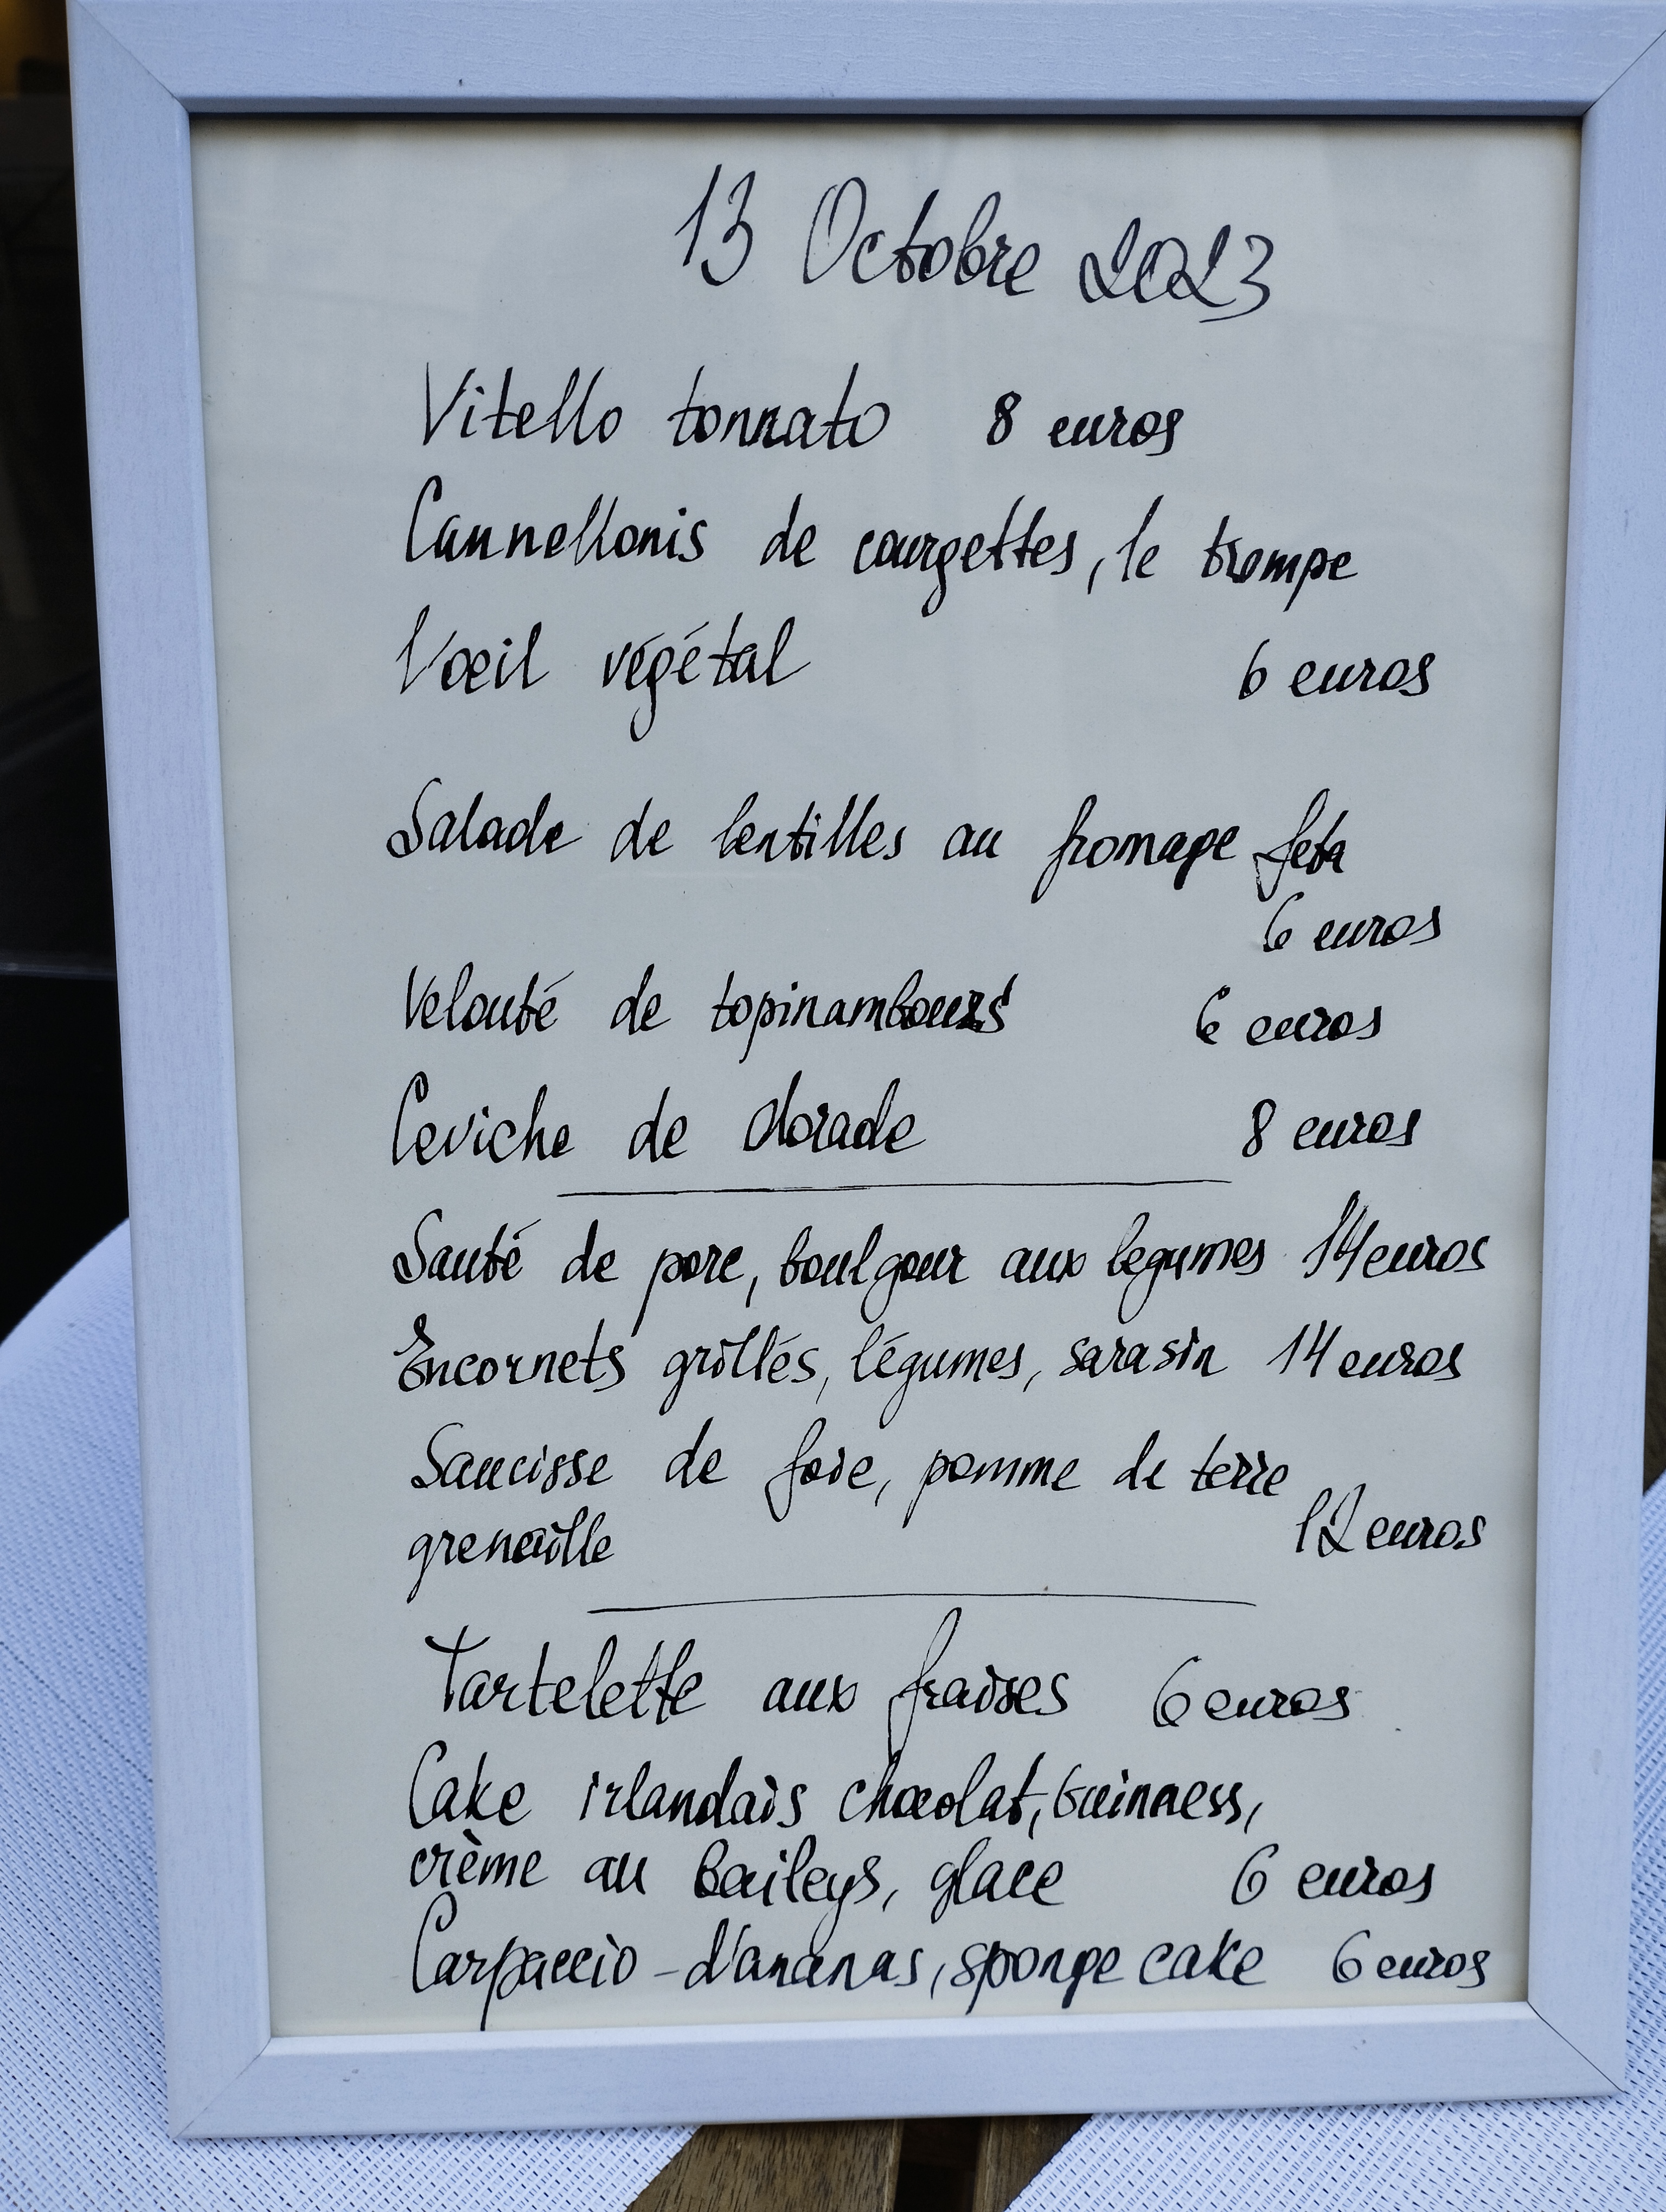 13 Octobre 2023
Vitello tonnato 8 euros
Cannellonis de courgettes, le trompe
l'œil végétal 6 euros
Salade de lentilles au fromage feta
6 euros
Velouté de topinambours 6 euros
Ceviche de dorade 8 euros
Sauté de porc, boulgour aux legumes 14 euros
Encornets grillés, légumes, sarasin 14 euros
Saucisse de foie, pomme de terre
grenaille 12 euros
Tartelette aux fraises 6 euros
Cake irlandais chocolat, Guinness,
crème au baileys, glace 6 euros
Carpaccio - d'ananas, sponge cake 6 euros